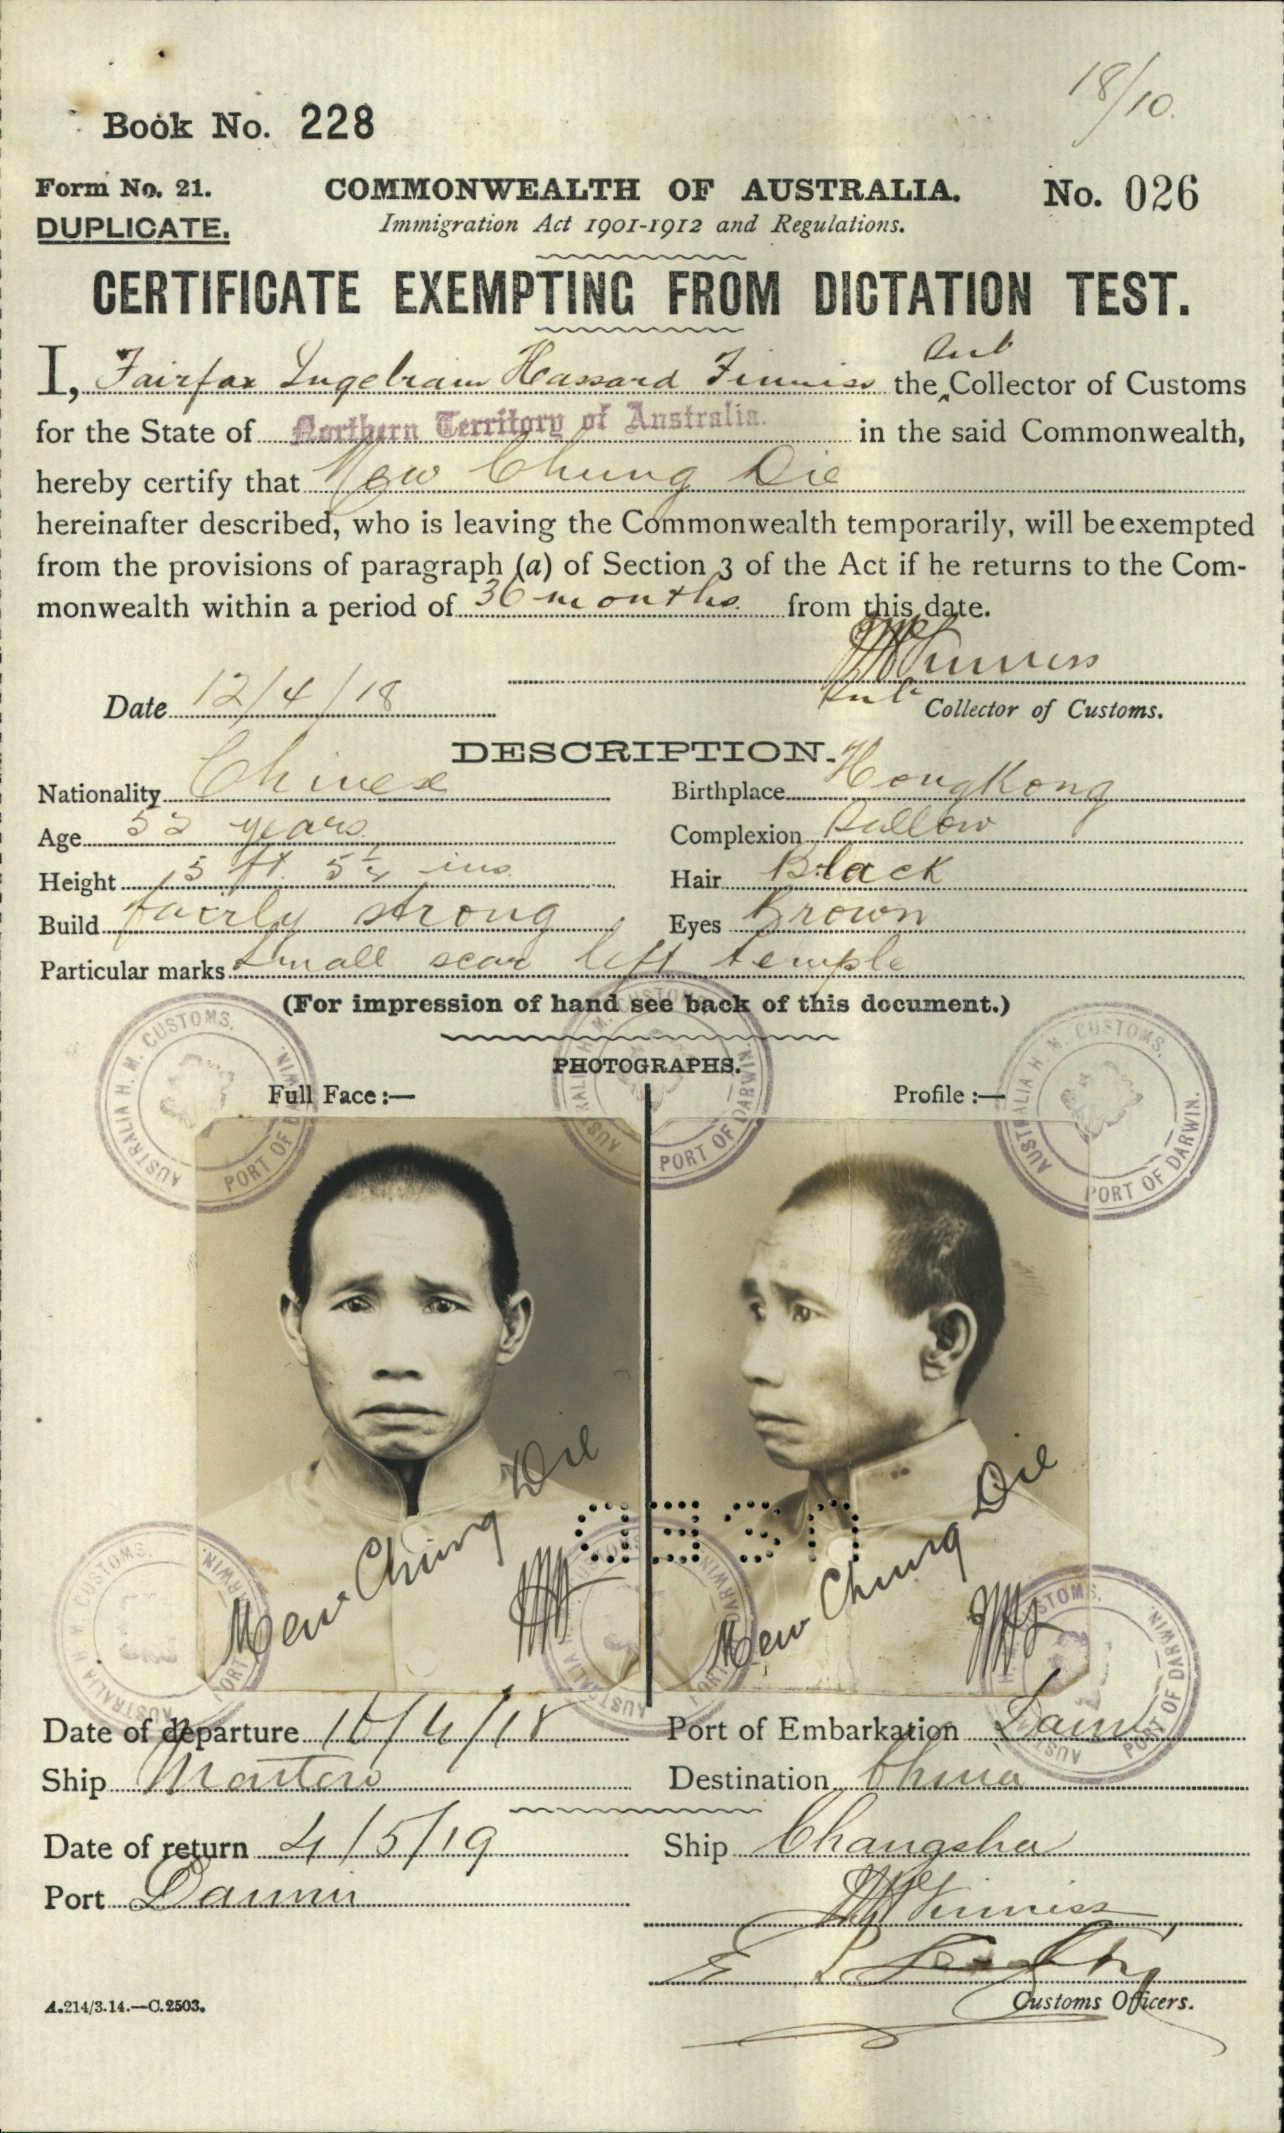 18/10.
Book No. 228
Form No. 21. COMMONWEALTH OF AUSTRALIA. No. 026
DUPLICATE. Immigration Act 1901-1912 and Regulations.
CERTIFICATE EXEMPTING FROM DICTATION TEST.
Sub
I, Fairfax Ingelram Hassard Finniss the Collector of Customs
for the State of Northern Territory of Australia. in the said Commonwealth,
hereby certify that Mew Chung Die
hereinafter described, who is leaving the Commonwealth temporarily, will be exempted
from the provisions of paragraph (a) of Section 3 of the Act if he returns to the Com-
monwealth within a period of 36 months from this date.
Finniss
Date 12/4/18 Sub Collector of Customs.
DESCRIPTION.
Nationality Chinese Birthplace HongKong
Age years Complexion Sallow
Height 5 ft. ins Hair Black
Build fairly strong Eyes Brown
Particular marks Small scar left temple
(For impression of hand see back of this document.)
PHOTOGRAPHS.
Full Face :— Profile :—
AUSTRALIA H. M. CUSTOMS. PORT OF DARWIN.
AUSTRALIA H. M. CUSTOMS. PORT OF DARWIN.
AUSTRALIA H. M. CUSTOMS. PORT OF DARWIN.
Mew Chung Die
Mew Chung Die
AUSTRALIA H. M. CUSTOMS. PORT OF DARWIN.
AUSTRALIA H. M. CUSTOMS. PORT OF DARWIN.
AUSTRALIA H. M. CUSTOMS. PORT OF DARWIN.
Date of departure /4/18 Port of Embarkation Darwin
Ship Montoro Destination China
Date of return 4/5/19 Ship Changsha
Port Darwin
Finniss
Customs Officers.
A.214/3.14.—C.2503.